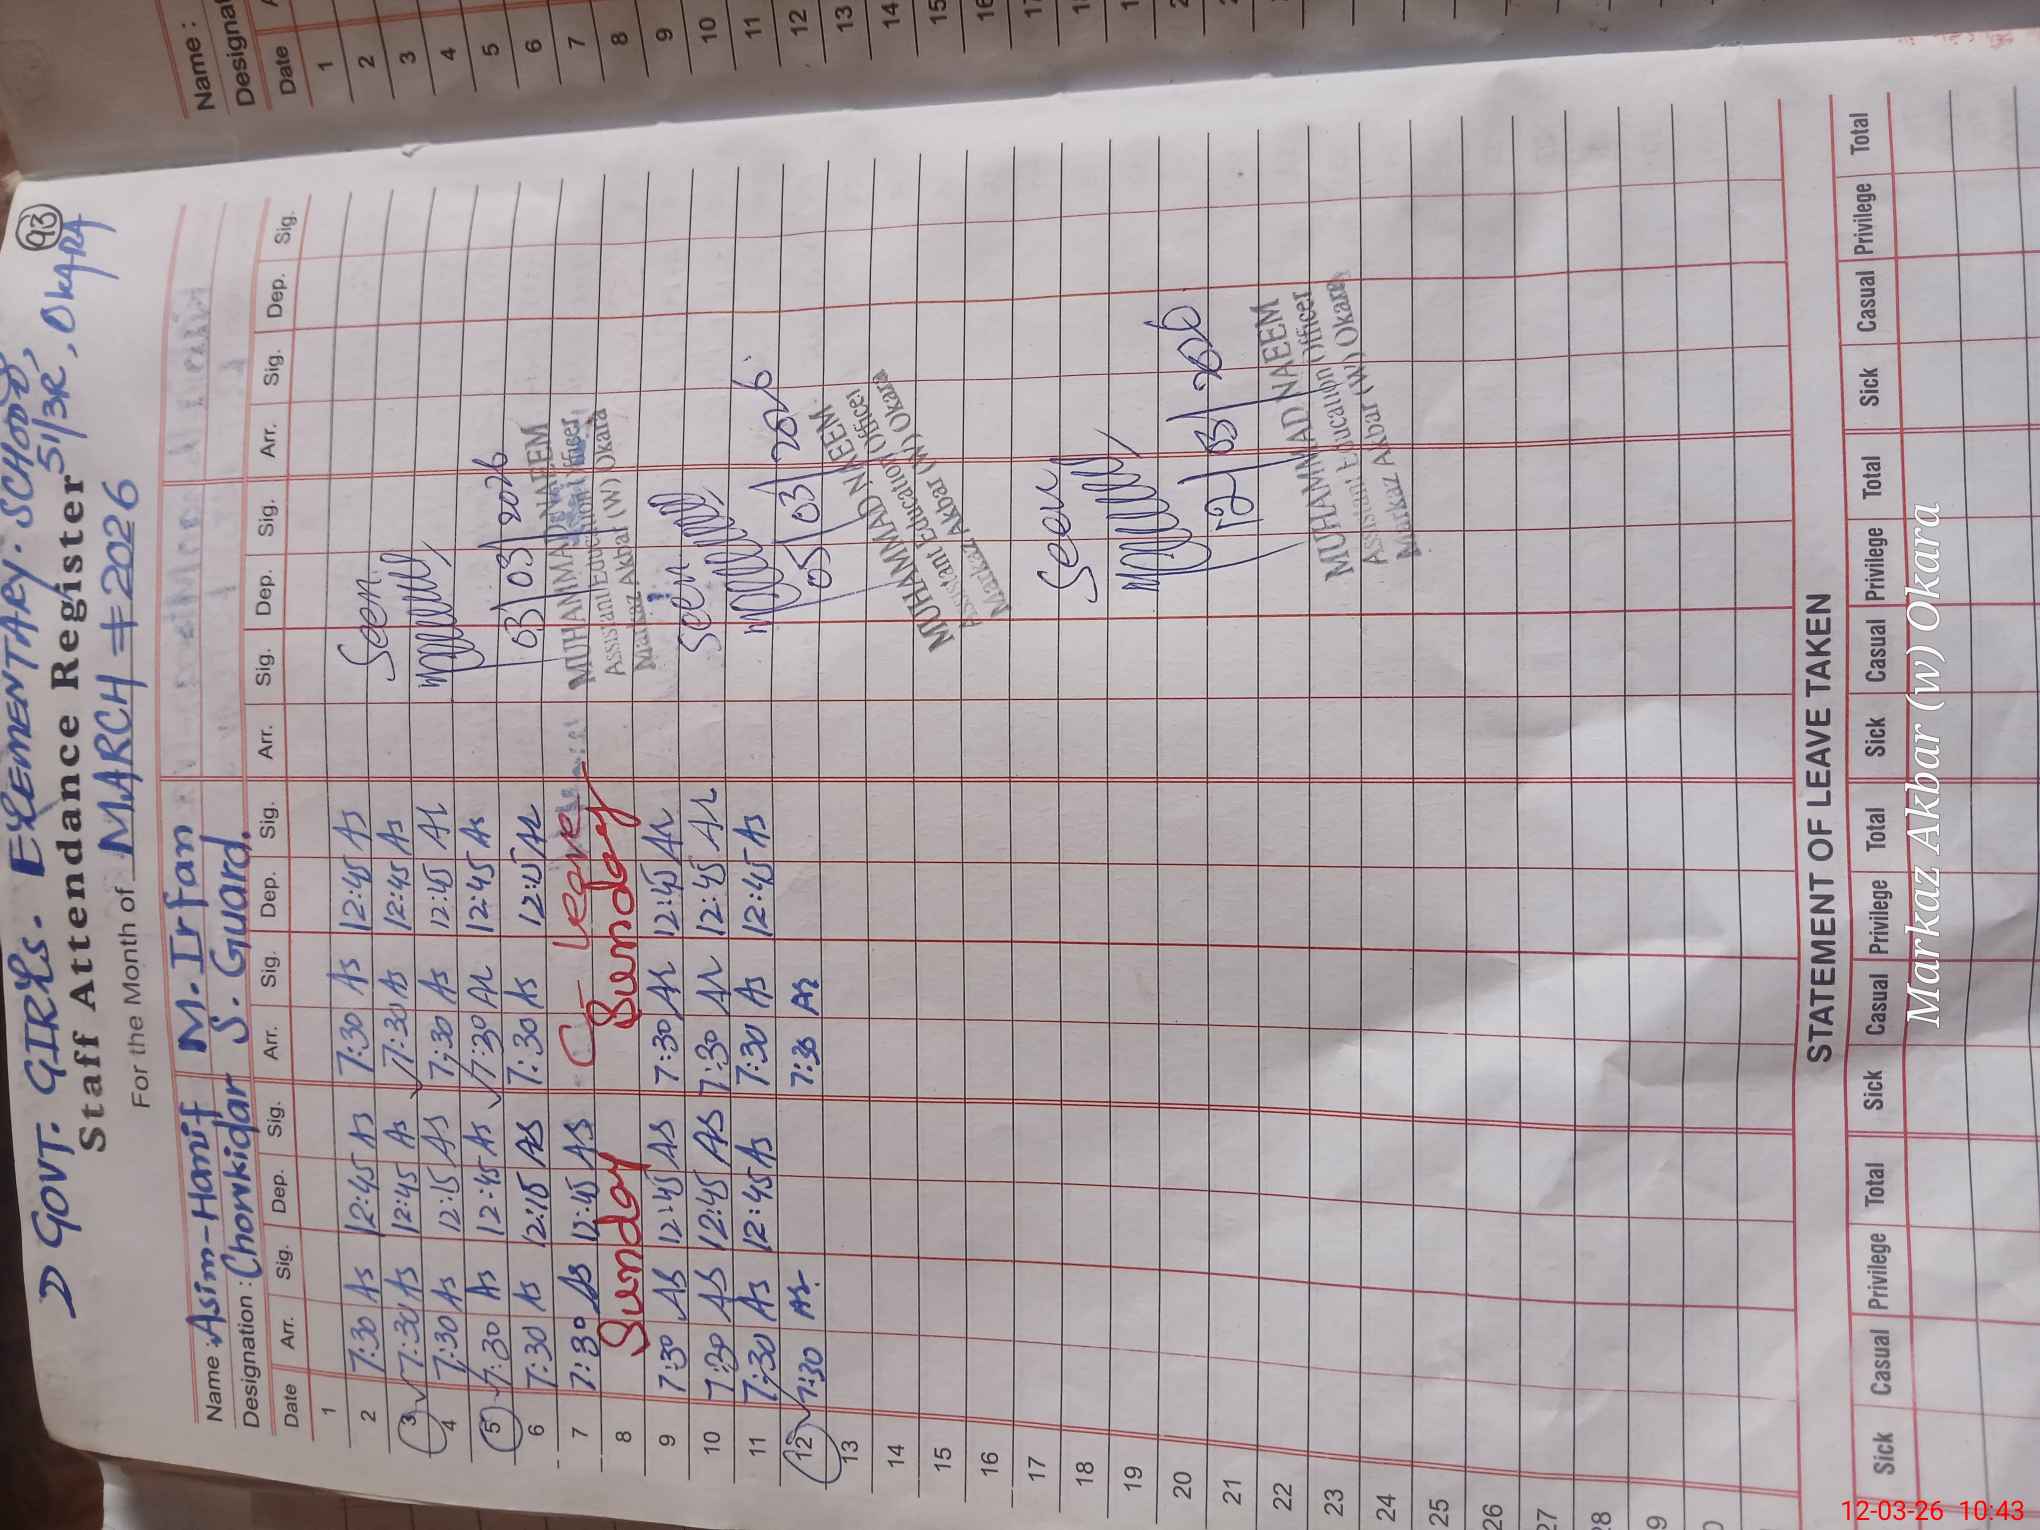 93
GOVT. GIRLS. ELEMENTARY. SCHOOL,
Staff Attendance Register 51/3R, OKARA
For the Month of MARCH = 2026
Name : Asim-Hanif M. Irfan
Designation : Chowkidar S. Guard.
Date Arr. Sig. Dep. Sig. Arr. Sig. Dep. Sig. Arr. Sig. Dep. Sig. Arr. Sig. Dep. Sig.
1
2 7:30 AS 12:45 AS 7:30 AS 12:45 AS Seen
3 7:30 AS 12:45 AS 7:30 AS 12:45 AS
4 7:30 AS 12:15 AS 7:30 AS 12:45 AR
5 7:30 AS 12:45 AS 7:30 AR 12:45 AS 03/03/2026
6 7:30 AS 12:15 AS 7:30 AS 12:15 AR MUHAMMAD NAEEM
7 7:30 AS 12:45 AS C-Leave Assistant Education Officer
8 Sunday Sunday Markaz Akbar (W) Okara
9 7:30 AS 12:45 AS 7:30 AR 12:45 AR Seen
10 7:30 AS 12:45 AS 7:30 AR 12:45 AR
11 7:30 AS 12:45 AS 7:30 AS 12:45 AS 05/03/2026
12 7:30 AS 7:30 AR MUHAMMAD NAEEM
13 Assistant Education Officer
14 Markaz Akbar (W) Okara
15
16
17 Seen
18
19
20 12/03/2026
21
22 MUHAMMAD NAEEM
23 Assistant Education Officer
24 Markaz Akbar (W) Okara
25
26
27
28
9
0
STATEMENT OF LEAVE TAKEN
Sick Casual Privilege Total Sick Casual Privilege Total Sick Casual Privilege Total Sick Casual Privilege Total
Markaz Akbar (w) Okara
Name :
Designat
Date A
1
2
3
4
5
6
7
8
9
10
11
12
13
14
15
16
12-03-26 10:43